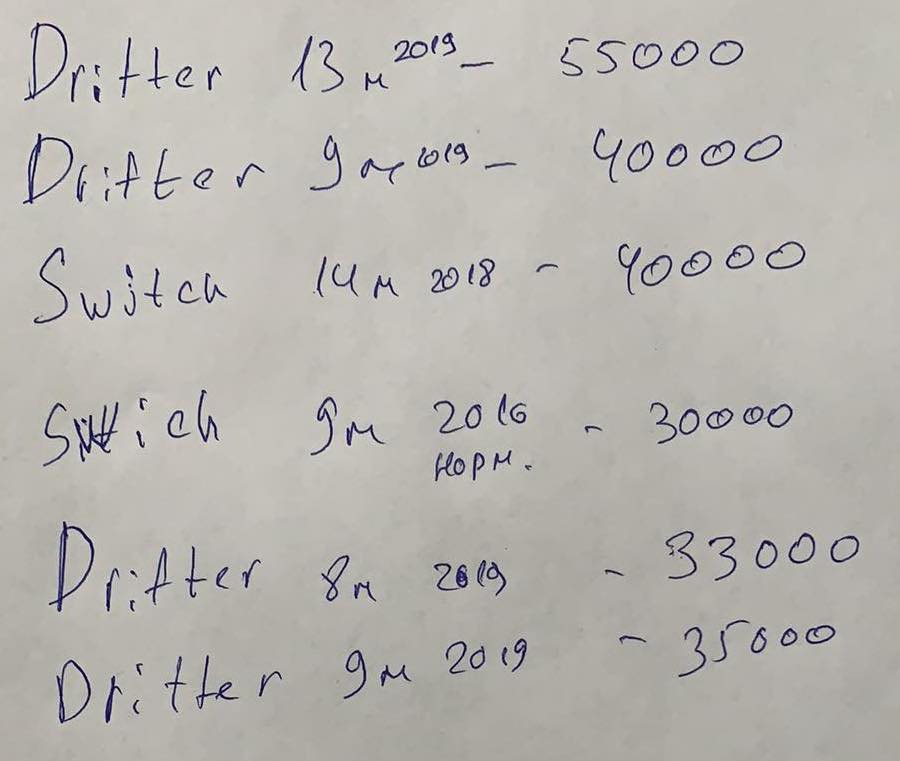 Dritter 13 м 2019 - 55000
Drifter 9 м 2019 - 40000
Switch 14 м 2018 - 40000
Switch 9м 2016 - 30000
норм.
Drifter 8м 2019 - 33000
Dritter 9м 2019 - 35000